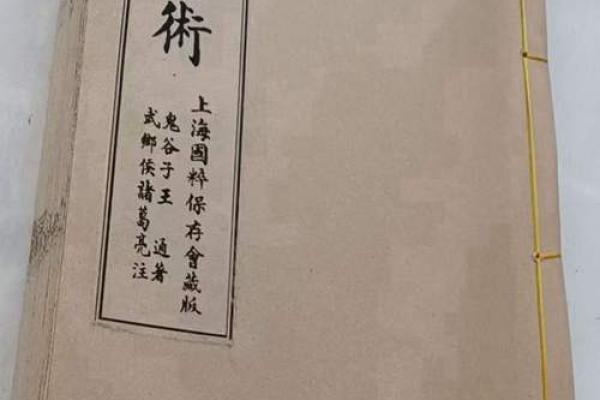 術
上海國粹保存會藏版
鬼谷子王　通著
武鄉侯諸葛亮注